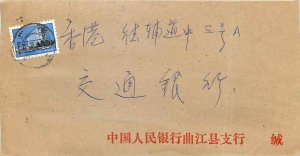 香港 德辅道中二号A
交通銀行
中国人民银行曲江县支行 缄